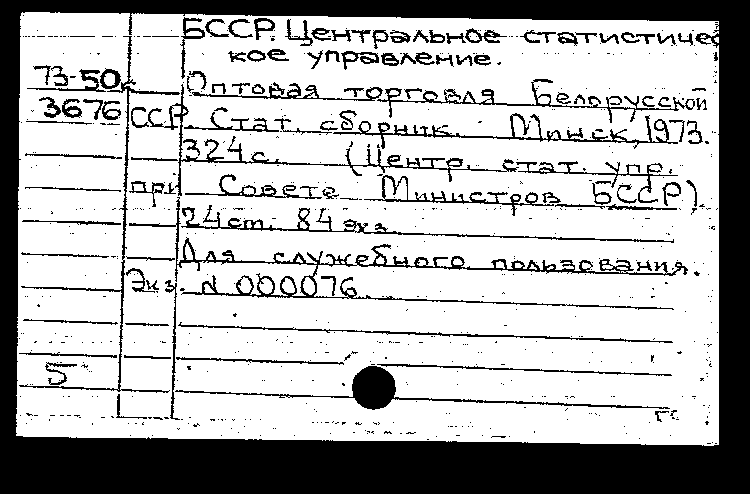 БССР. Центральное статистичес
кое управление.
73-50к Оптовая торговля Белорусской
3676 ССР. Стат. сборник. Минск, 1973.
324 с. (Центр. стат. упр.
при Совете Министров БССР).
24 см. 84 экз.
Для служебного пользования.
Экз. № 000076.
5